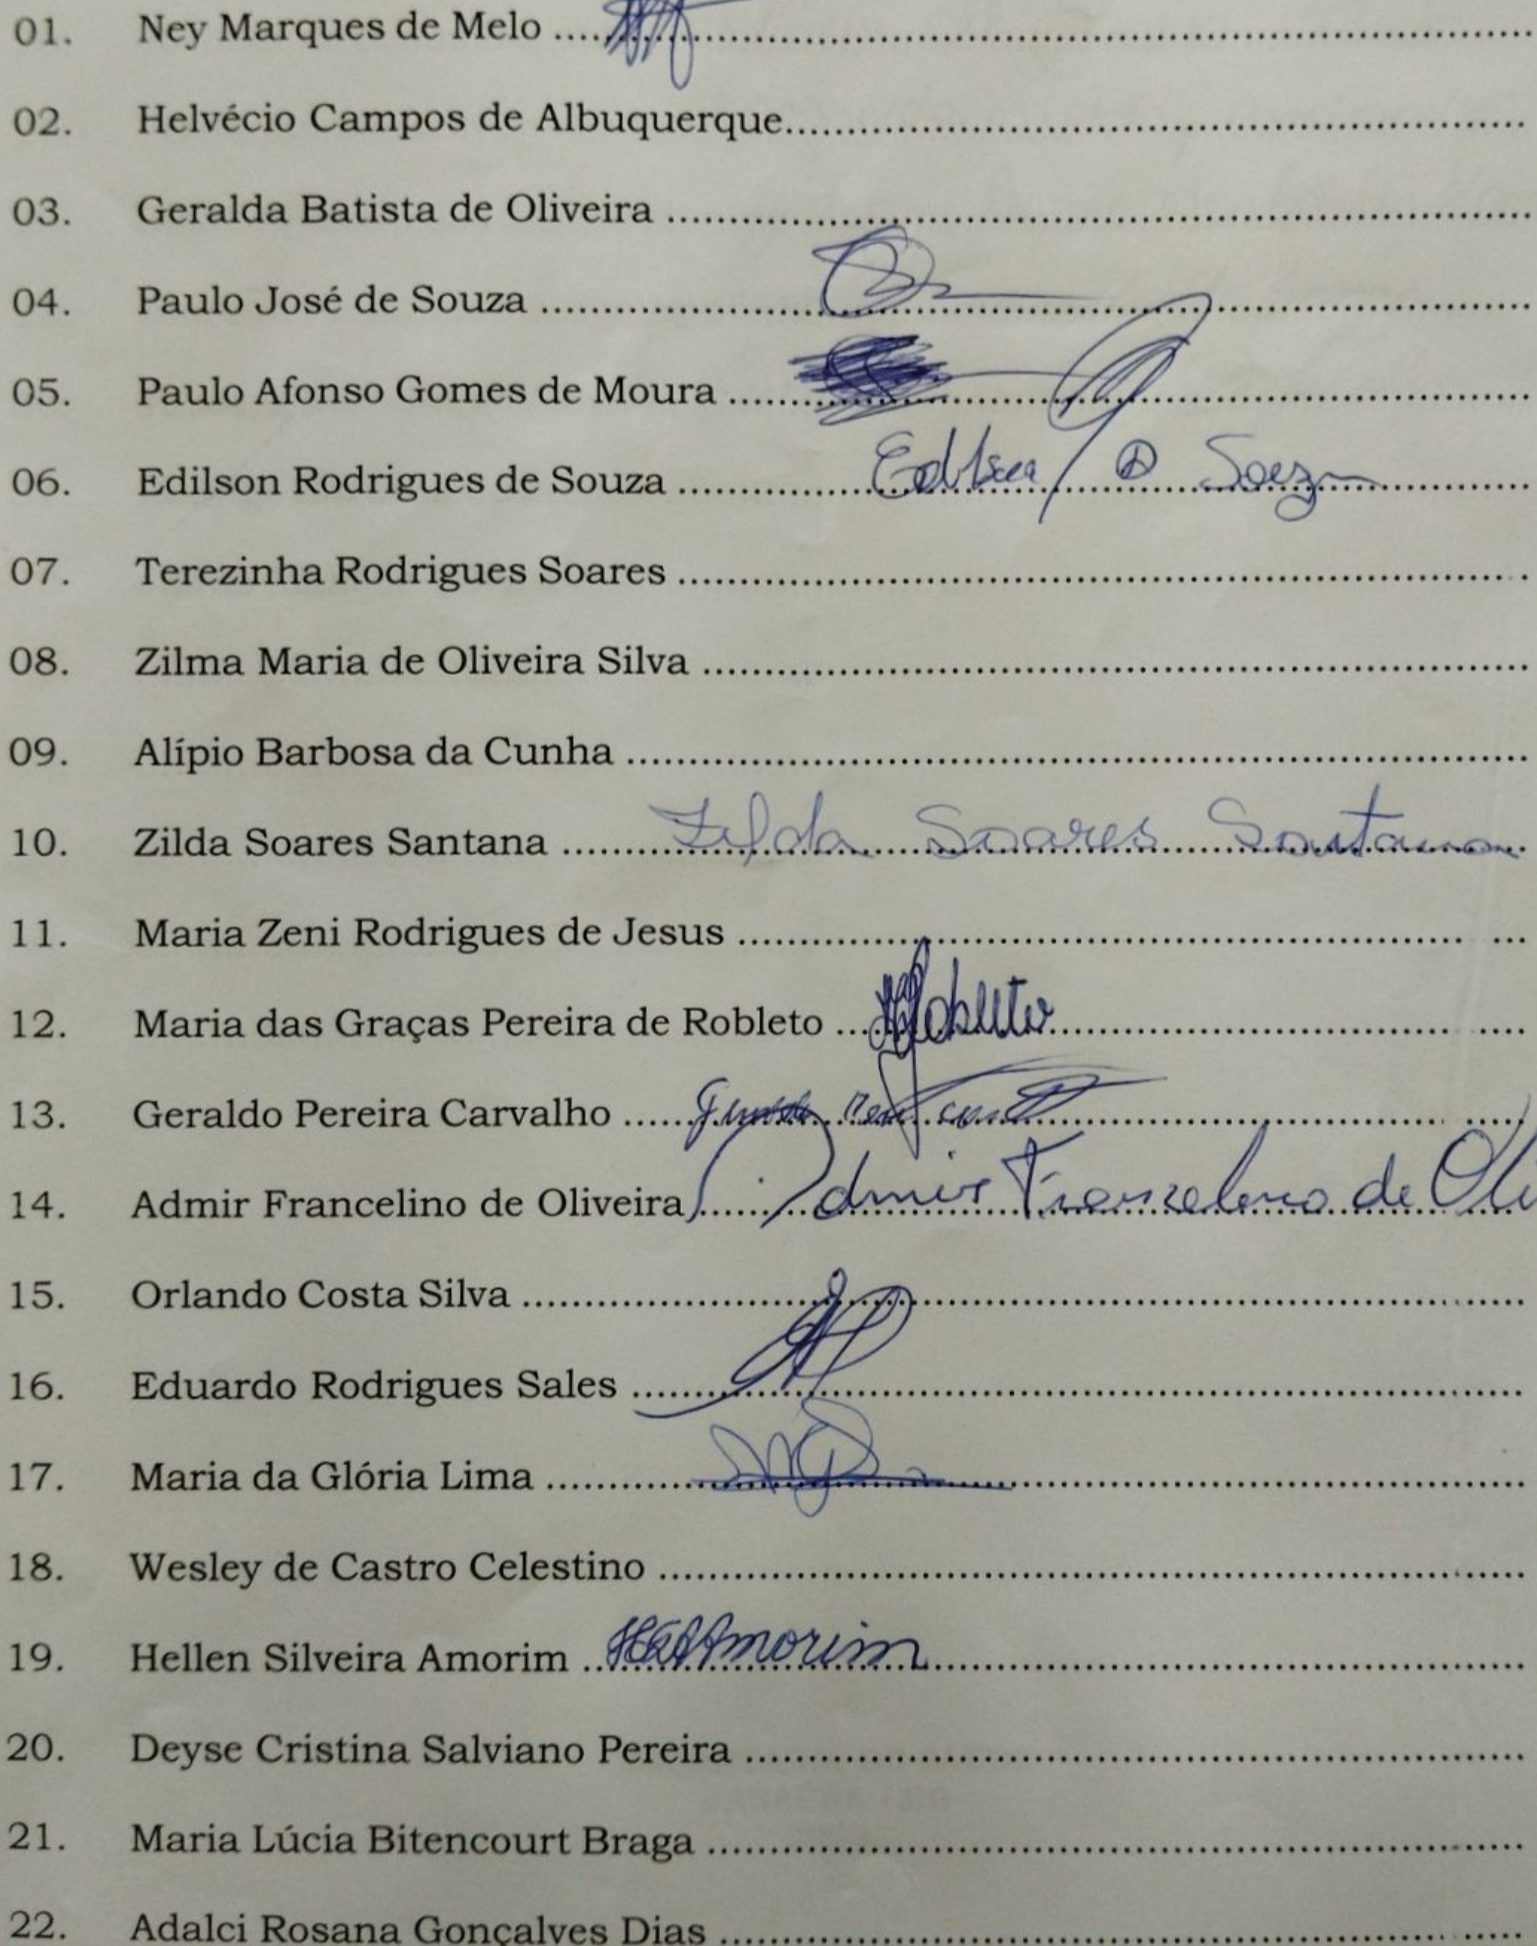 01. Ney Marques de Melo
02. Helvécio Campos de Albuquerque
03. Geralda Batista de Oliveira
04. Paulo José de Souza
05. Paulo Afonso Gomes de Moura
06. Edilson Rodrigues de Souza
07. Terezinha Rodrigues Soares
08. Zilma Maria de Oliveira Silva
09. Alípio Barbosa da Cunha
10. Zilda Soares Santana Zilda Soares Santana
11. Maria Zeni Rodrigues de Jesus
12. Maria das Graças Pereira de Robleto Robleto
13. Geraldo Pereira Carvalho
14. Admir Francelino de Oliveira Admir Francelino de Oli
15. Orlando Costa Silva
16. Eduardo Rodrigues Sales
17. Maria da Glória Lima
18. Wesley de Castro Celestino
19. Hellen Silveira Amorim Amorim
20. Deyse Cristina Salviano Pereira
21. Maria Lúcia Bitencourt Braga
22. Adalci Rosana Gonçalves Dias